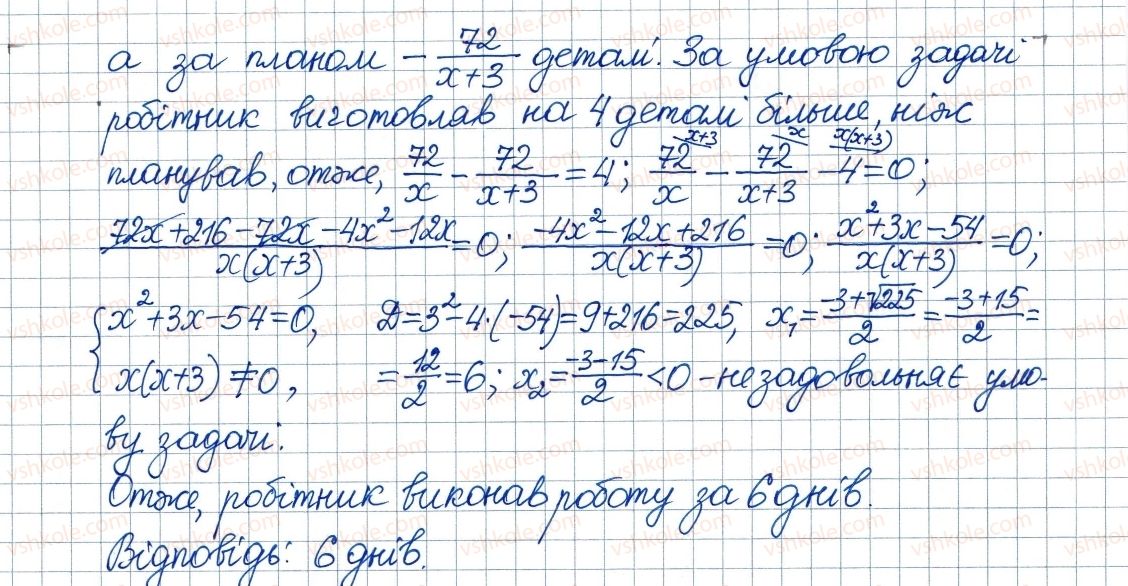 а за планом – 72/(x+3) деталі. За умовою задачі
робітник виготовляв на 4 деталі більше, ніж
планував, отже, 72/x - 72/(x+3) = 4; 72/x^(x+3) - 72/(x+3)^x - 4^(x(x+3)) = 0;
(72x+216-72x-4x²-12x)/(x(x+3)) = 0; (-4x²-12x+216)/(x(x+3)) = 0; (x²+3x-54)/(x(x+3)) = 0;
{ x²+3x-54=0, D=3²-4·(-54)=9+216=225, x₁=(-3+√225)/2=(-3+15)/2=
x(x+3)≠0, =12/2=6; x₂=(-3-15)/2<0 – не задовольняє умо-
ву задачі.
Отже, робітник виконав роботу за 6 днів.
Відповідь: 6 днів.